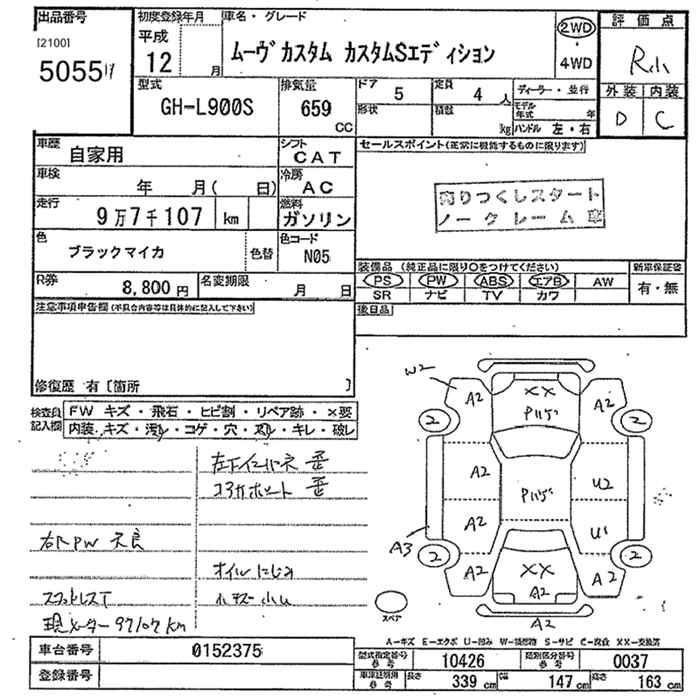 出品番号
[2100]
5055
初度登録年月
平成
12
月
車名・グレード
ムーヴカスタム カスタムSエディション
2WD
4WD
評価点
R小
外装
内装
D
C
型式
GH-L900S
排気量
659
CC
ドア
5
定員
4
人
形状
積載
kg
ディーラー・並行
モデル年式
年
ハンドル 左・右
車歴
自家用
シフト
CAT
車検
年 月( 日)
冷房
AC
走行
9万7千107 km
燃料
ガソリン
色
ブラックマイカ
色替
色コード
N05
R券
8,800円
名変期限
月 日
セールスポイント(正常に機能するものに限ります)
売りつくしスタート
ノークレーム車
装備品 (純正品に限り○をつけてください)
PS
PW
ABS
エアB
AW
SR
ナビ
TV
カワ
新車保証書
有・無
後日品
注意事項申告欄(不具合内容等は具体的に記入して下さい)
修復歴 有 [箇所 ]
検査員記入欄
FW キズ・飛石・ヒビ割・リペア跡・×要
内装、キズ・汚レ・コゲ・穴・スレ・キレ・破レ
左下インパネ 歪
コアサポート 歪
右ドアPW 不良
オイルにじみ
スペアレスT
小キズ・小凹
現メーター 97107km
W2
A2
XX
Pハゲ
A2
2
2
A2
Pハゲ
U2
A2
U1
A3
2
2
A2
XX
A2
A2
A2
スペア
A-キズ E-エクボ U-凹み W-補修跡 S-サビ C-腐食 XX-交換済
車台番号
0152375
登録番号
型式指定番号
参考
10426
類別区分番号
参考
0037
車庫証明用
参考
長さ
339 cm
幅
147 cm
高さ
163 cm